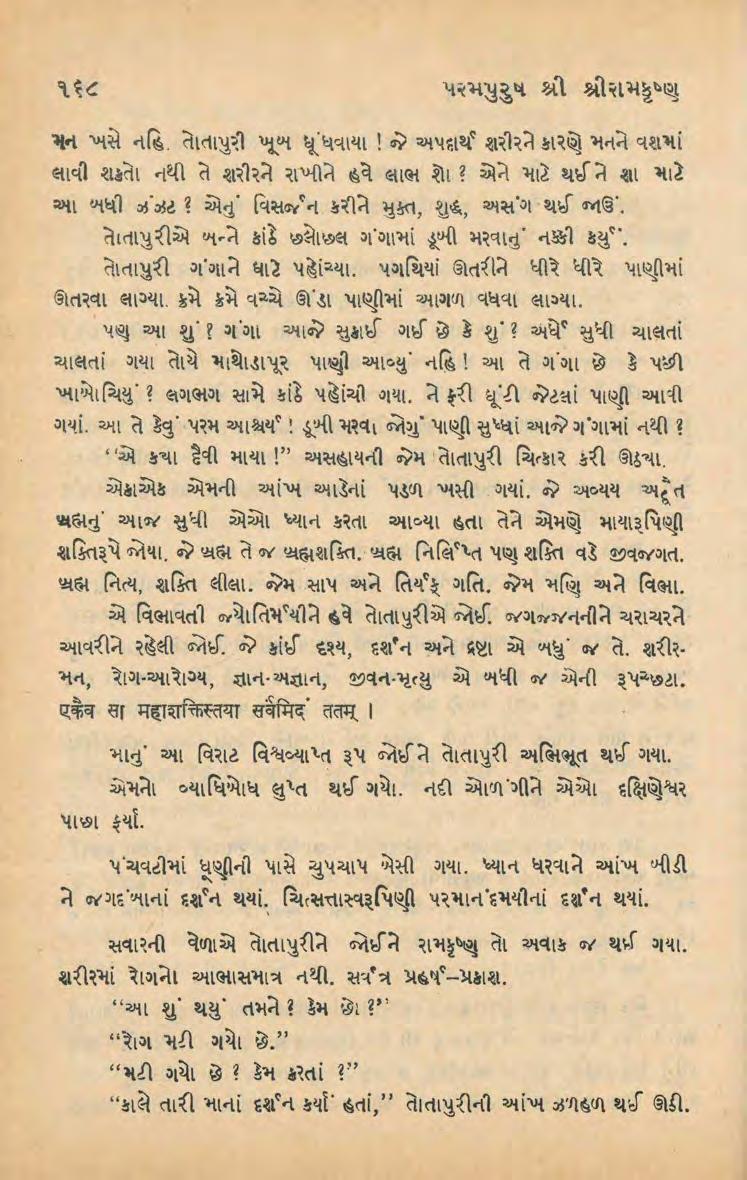 ૧૬૮ પરમપુરુષ શ્રી શ્રીરામકૃષ્ણ
મન ખસે નહિ. તોતાપુરી ખૂબ ધૂંધવાયા ! જે અપદાર્થ શરીરને કારણે મનને વશમાં
લાવી શકતો નથી તે શરીરને રાખીને હવે લાભ શો ? એને માટે થઈને શા માટે
આ બધી ઝંઝટ ? એનું વિસર્જન કરીને મુક્ત, શુદ્ધ, અસંગ થઈ જાઉં.
તોતાપુરીએ બન્ને કાંઠે છલોછલ ગંગામાં ડૂબી મરવાનું નક્કી કર્યું.
તોતાપુરી ગંગાને ઘાટે પહોંચ્યા. પગથિયાં ઊતરીને ધીરે ધીરે પાણીમાં
ઊતરવા લાગ્યા. ક્રમે ક્રમે વચ્ચે ઊંડા પાણીમાં આગળ વધવા લાગ્યા.
પણ આ શું ? ગંગા આજે સુકાઈ ગઈ છે કે શું ? અર્ધે સુધી ચાલતાં
ચાલતાં ગયા તોયે માથોડાપૂર પાણી આવ્યું નહિ ! આ તે ગંગા છે કે પછી
ખાબોચિયું ? લગભગ સામે કાંઠે પહોંચી ગયા. ને ફરી ઘૂંટી જેટલાં પાણી આવી
ગયાં. આ તે કેવું પરમ આશ્ચર્ય ! ડૂબી મરવા જોગું પાણી સુધ્ધાં આજે ગંગામાં નથી ?
“એ કયા દૈવી માયા !” અસહાયની જેમ તોતાપુરી ચિત્કાર કરી ઊઠ્યા.
એકાએક એમની આંખ આડેનાં પડળ ખસી ગયાં. જે અવ્યય અદ્વૈત
બ્રહ્મનું આજ સુધી એઓ ધ્યાન કરતા આવ્યા હતા તેને એમણે માયારૂપિણી
શક્તિરૂપે જોયા. જે બ્રહ્મ તે જ બ્રહ્મશક્તિ. બ્રહ્મ નિર્લિપ્ત પણ શક્તિ વડે જીવજગત.
બ્રહ્મ નિત્ય, શક્તિ લીલા. જેમ સાપ અને તિર્યક્ ગતિ. જેમ મણિ અને વિભા.
એ વિભાવતી જ્યોતિર્મયીને હવે તોતાપુરીએ જોઈ. જગજ્જનનીને ચરાચરને
આવરીને રહેલી જોઈ. જે કાંઈ દૃશ્ય, દર્શન અને દ્રષ્ટા એ બધું જ તે. શરીર-
મન, રોગ-આરોગ્ય, જ્ઞાન-અજ્ઞાન, જીવન-મૃત્યુ એ બધી જ એની રૂપચ્છટા.
एकैव सा महाशक्तिस्तया सर्वमिदं ततम् ।
માનું આ વિરાટ વિશ્વવ્યાપ્ત રૂપ જોઈને તોતાપુરી અભિભૂત થઈ ગયા.
એમનો વ્યાધિબોધ લુપ્ત થઈ ગયો. નદી ઓળંગીને એઓ દક્ષિણેશ્વર
પાછા ફર્યા.
પંચવટીમાં ધૂણીની પાસે ચુપચાપ બેસી ગયા. ધ્યાન ધરવાને આંખ બીડી
ને જગદંબાનાં દર્શન થયાં. ચિત્સત્તાસ્વરૂપિણી પરમાનંદમયીનાં દર્શન થયાં.
સવારની વેળાએ તોતાપુરીને જોઈને રામકૃષ્ણ તો અવાક જ થઈ ગયા.
શરીરમાં રોગનો આભાસમાત્ર નથી. સર્વત્ર પ્રહર્ષ–પ્રકાશ.
“આ શું થયું તમને ? કેમ છો ?”
“રોગ મટી ગયો છે.”
“મટી ગયો છે ? કેમ કરતાં ?”
“કાલે તારી માનાં દર્શન કર્યાં હતાં,” તોતાપુરીની આંખ ઝળહળ થઈ ઊઠી.